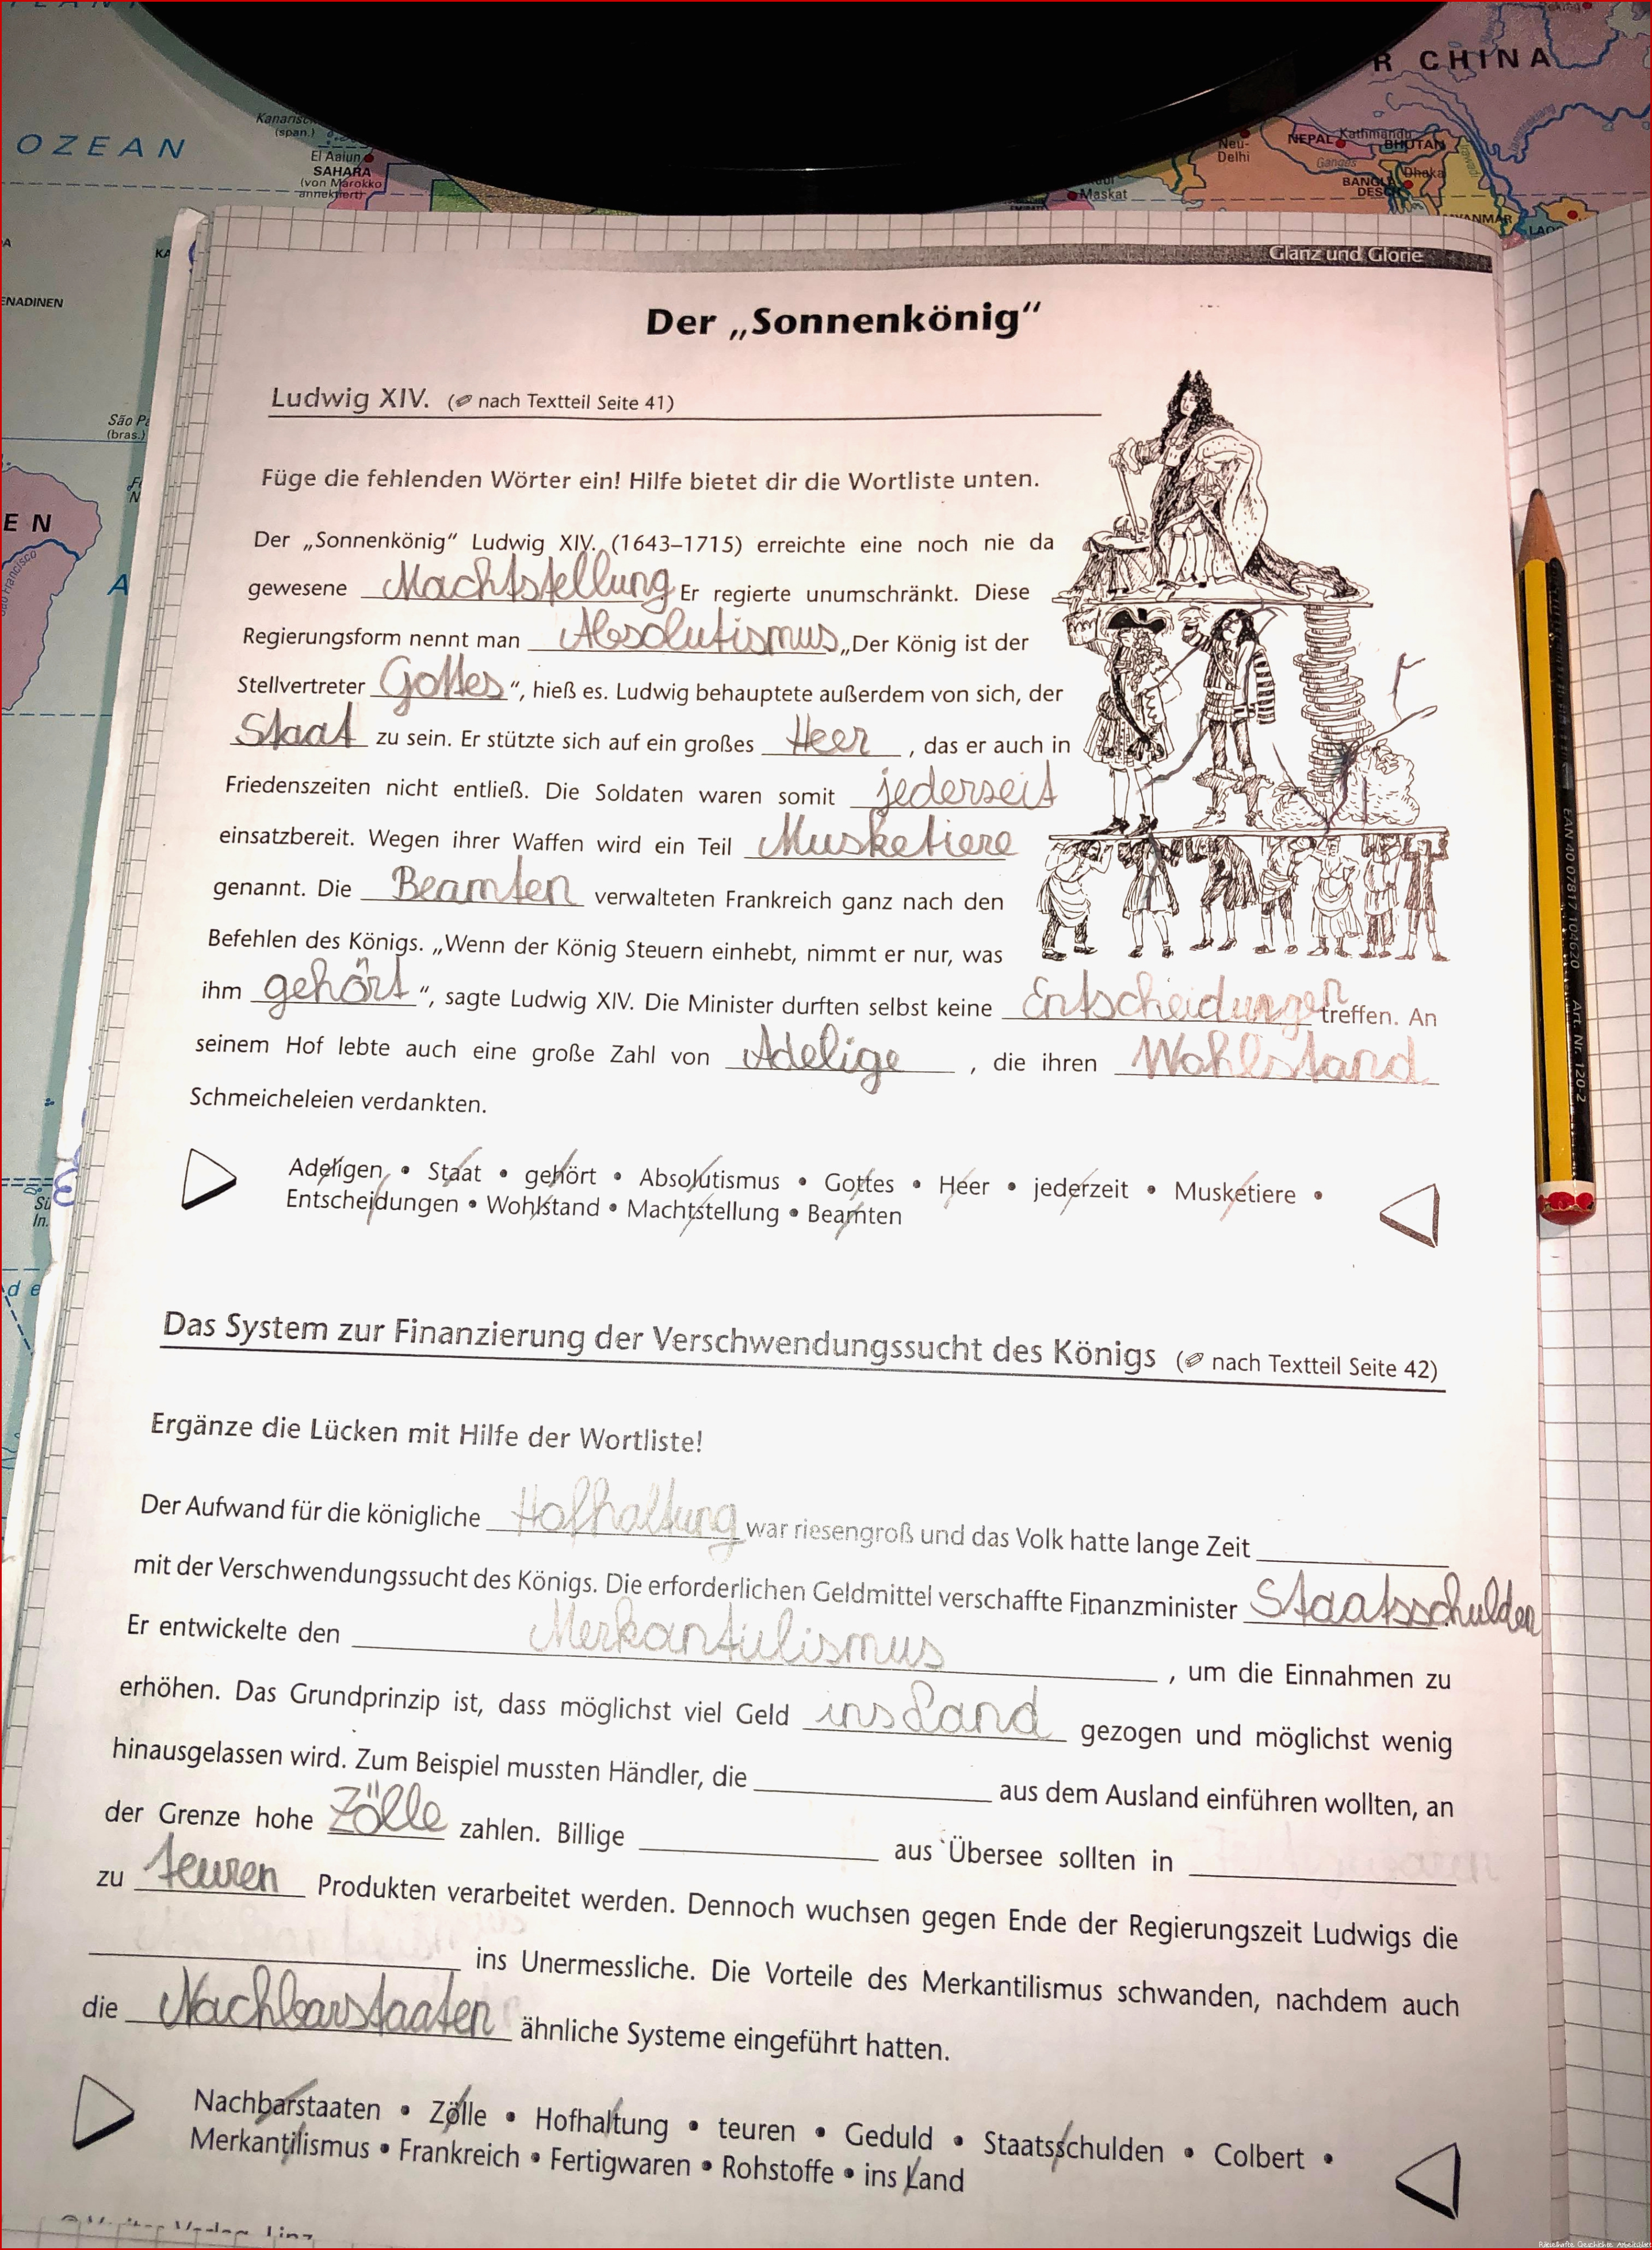 OZEAN
Kanarisc
(span.)
El Aaiun
SAHARA
(von Marokko
annektiert)
R CHINA
Neu-
Delhi
NEPAL
Kathmandu
BHUTAN
Ganges
BANGL
DESC
Dhaka
Maskat
YANMAR
LAOS
Jangtsekiang
KA
ENADINEN
São Pa
(bras.)
EN
A
Glanz und Glorie
Der „Sonnenkönig“
Ludwig XIV. (✎ nach Textteil Seite 41)
Füge die fehlenden Wörter ein! Hilfe bietet dir die Wortliste unten.
Der „Sonnenkönig“ Ludwig XIV. (1643–1715) erreichte eine noch nie da
gewesene Machtstellung. Er regierte unumschränkt. Diese
Regierungsform nennt man Absolutismus. „Der König ist der
Stellvertreter Gottes“, hieß es. Ludwig behauptete außerdem von sich, der
Staat zu sein. Er stützte sich auf ein großes Heer, das er auch in
Friedenszeiten nicht entließ. Die Soldaten waren somit jederseit
einsatzbereit. Wegen ihrer Waffen wird ein Teil Musketiere
genannt. Die Beamten verwalteten Frankreich ganz nach den
Befehlen des Königs. „Wenn der König Steuern einhebt, nimmt er nur, was
ihm gehört“, sagte Ludwig XIV. Die Minister durften selbst keine Entscheidungen treffen. An
seinem Hof lebte auch eine große Zahl von Adelige, die ihren Wohlstand
Schmeicheleien verdankten.
Adeligen • Staat • gehört • Absolutismus • Gottes • Heer • jederzeit • Musketiere •
Entscheidungen • Wohlstand • Machtstellung • Beamten
Das System zur Finanzierung der Verschwendungssucht des Königs (✎ nach Textteil Seite 42)
Ergänze die Lücken mit Hilfe der Wortliste!
Der Aufwand für die königliche Hofhaltung war riesengroß und das Volk hatte lange Zeit
mit der Verschwendungssucht des Königs. Die erforderlichen Geldmittel verschaffte Finanzminister Staatsschulden.
Er entwickelte den Merkantulismus, um die Einnahmen zu
erhöhen. Das Grundprinzip ist, dass möglichst viel Geld ins Land gezogen und möglichst wenig
hinausgelassen wird. Zum Beispiel mussten Händler, die aus dem Ausland einführen wollten, an
der Grenze hohe Zölle zahlen. Billige aus Übersee sollten in
zu teuren Produkten verarbeitet werden. Dennoch wuchsen gegen Ende der Regierungszeit Ludwigs die
ins Unermessliche. Die Vorteile des Merkantilismus schwanden, nachdem auch
die Nachbarstaaten ähnliche Systeme eingeführt hatten.
Nachbarstaaten • Zölle • Hofhaltung • teuren • Geduld • Staatsschulden • Colbert •
Merkantilismus • Frankreich • Fertigwaren • Rohstoffe • ins Land
Art. Nr. 120-2